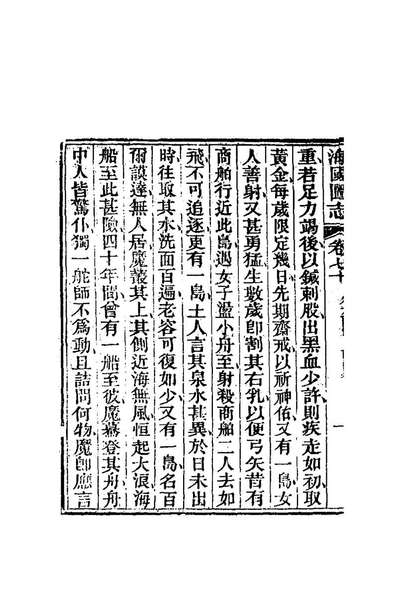 海國圖志 卷七十
重若足力竭後以鍼刺股出黑血少許則疾走如初取
黃金每歲限定幾日先期齋戒以祈神佑又有一島女
人善射又甚勇猛生數歲卽割其右乳以便弓矢昔有
商舶行近此島遇女子盪小舟至射殺商舶二人去如
飛不可追逐更有一島土人言其泉水甚異於日未出
時往取其水洗面百遍老容可復如少又有一島名百
爾謨達無人居魔叢其上其側近海無風恒起大浪海
船至此甚險四十年間曾有一船至彼魔驀登其舟舟
中人皆驚仆獨一舵師不爲動且詰問何物魔卽應言